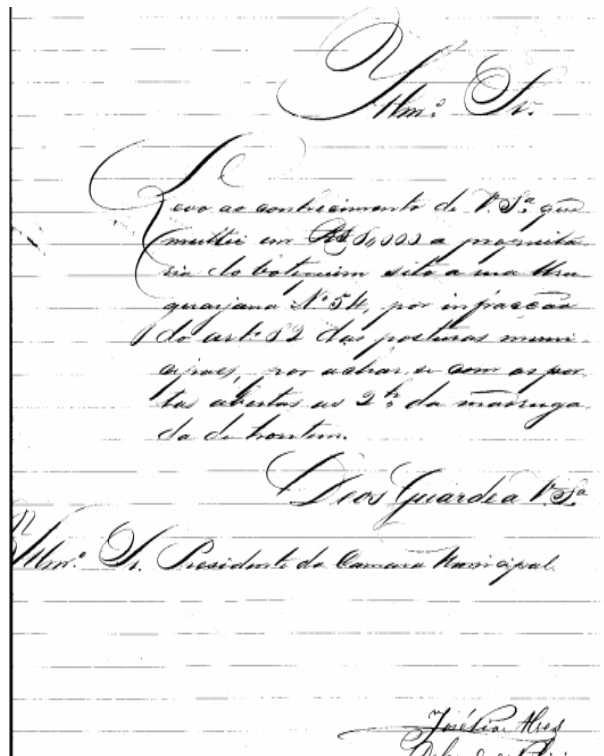 Illmº Sr.
Levo ao conhecimento de V. Sª que
multei em a proprieta-
ria do botequim sito a rua Uru-
guayana Nº 54, por infracção
do artº 82 das posturas muni-
cipaes, por achar-se com as por-
tas abertas as 2 h. da madruga-
da de hontem.
Deos Guarde a V. Sª
Illmº Sr. Presidente da Camara Municipal.
José Alves